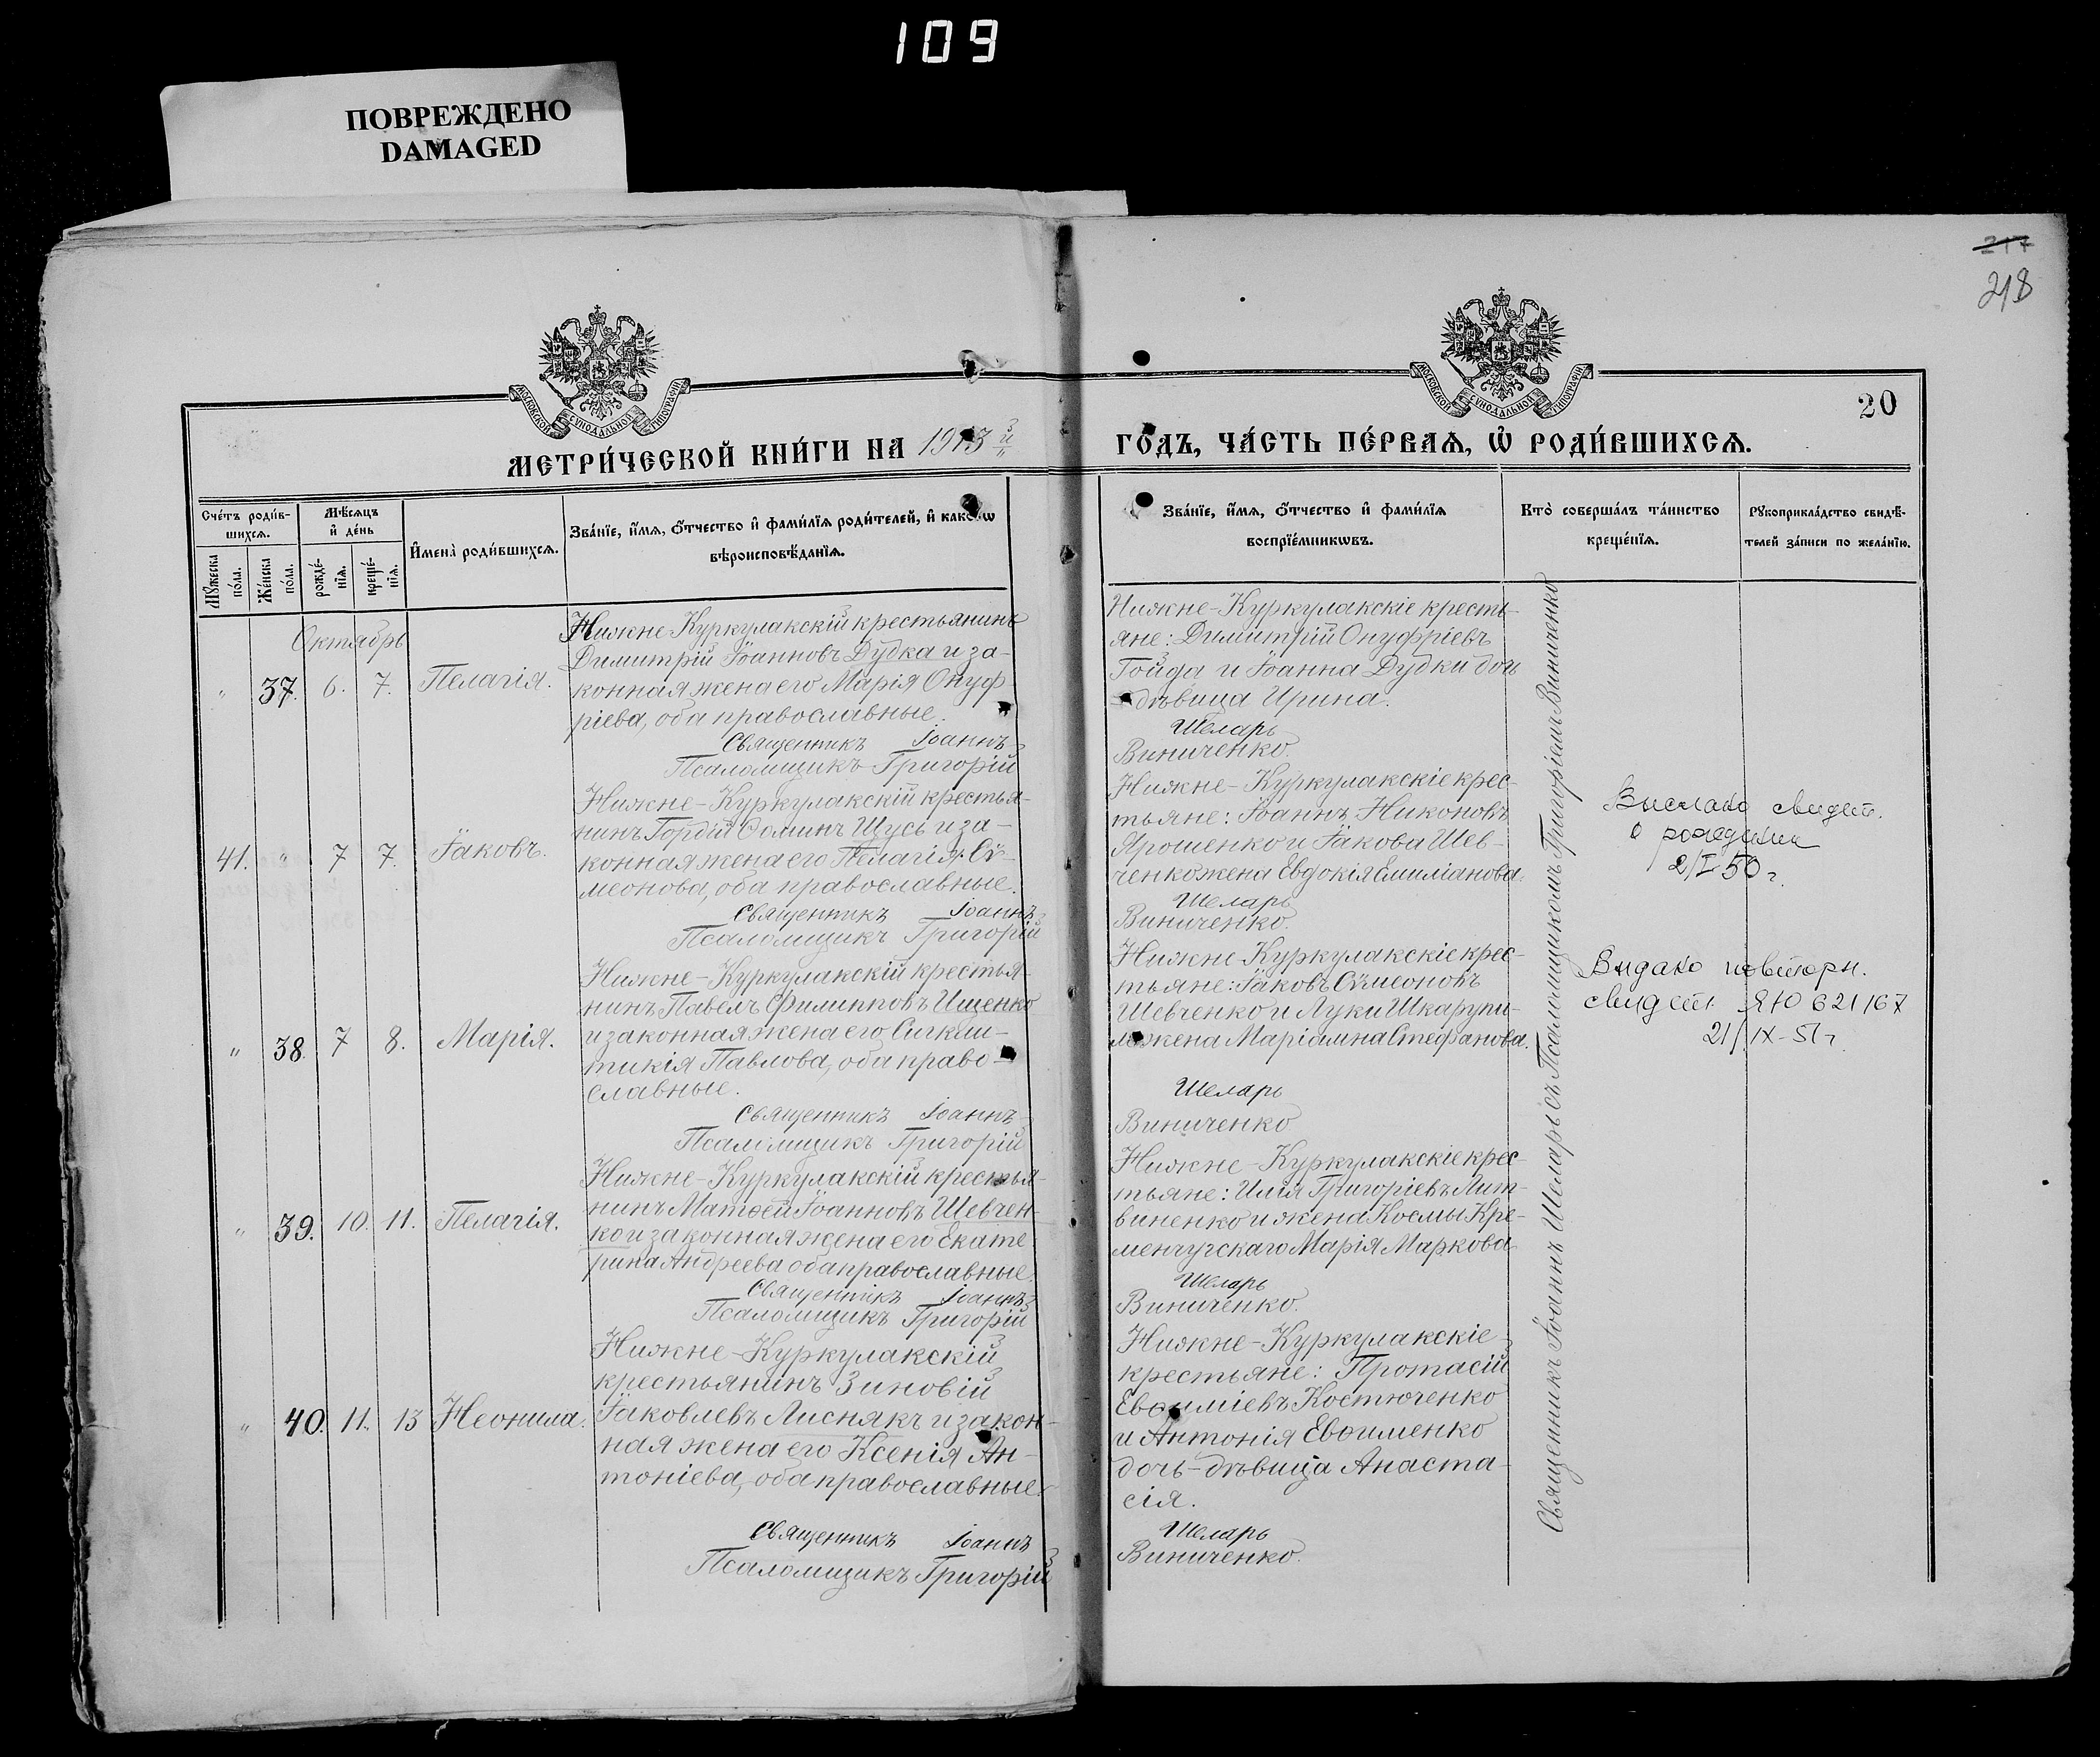 109
ПОВРЕЖДЕНО
DAMAGED
217
218
МОСКОВСКОЙ СУНОДАЛЬНОЙ ТИПОГРАФІИ
МОСКОВСКОЙ СУНОДАЛЬНОЙ ТИПОГРАФІИ
20
МЕТРИ́ЧЕСКОЙ КНИ́ГИ НА 1913й
ГО́ДЪ, ЧА́СТЬ ПЕ́РВАѦ, Ѡ҆ РОДИ́ВШИХСѦ.
Сче́тъ роди́в-
шихсѧ.
Мꙋжеска по́ла.
Же́нска по́ла.
Мѣ́сѧцъ
и҆ де́нь
рожде́-
нїѧ.
креще́-
нїѧ.
И҆мена̀ роди́вшихсѧ.
Зва́нїе, и҆́мѧ, ѻ҆́тчество и҆ фами́лїѧ роди́телей, и҆ како́гѡ
вѣроисповѣ́данїѧ.
Зва́нїе, и҆́мѧ, ѻ҆́тчество и҆ фами́лїѧ
воспрїе́мникѡвъ.
Кто̀ соверша́лъ та́инство
креще́нїѧ.
Рꙋкоприкла́дство свидѣ́-
телей за́писи по жела́нїю.
Октябрь
" 37. 6. 7. Пелагія.
Нижне-Куркулакскій крестьянинъ
Димитрій Іоанновъ Дудка и за-
конная жена его Марія Онуф
ріева, оба православные.
Священникъ Іоаннъ
Псаломщикъ Григорій
Нижне-Куркулакскіе кресть-
яне: Димитрій Онуфріевъ
Гойда и Іоанна Дудки дочь
-дѣвица Ирина.
Шеларь
Виниченко
41. " 7 7. Іаковъ.
Нижне-Куркулакскій крестья-
нинъ Гордій Ѳоминъ Щусь и за-
конная жена его Пелагія Сѵ-
меонова, оба православные.
Священникъ Іоаннъ
Псаломщикъ Григорій
Нижне-Куркулакскіе крес-
тьяне: Іоаннъ Никоновъ
Ярошенко и Іакова Шев-
ченко жена Евдокія Емиліанова.
Шеларь
Виниченко.
Выслано свидет.
о рождении
2/I 50 г.
" 38. 7 8. Марія.
Нижне-Куркулакскій крестья-
нинъ Павелъ Филипповъ Ищенко
и законная жена его Сигкли-
тикія Павлова, оба право-
славные.
Священникъ Іоаннъ
Псаломщикъ Григорій
Нижне-Куркулакскіе крес-
тьяне: Іаковъ Сѵмеоновъ
Шевченко и Луки Шкарупи-
ло жена Маріамна Стефанова.
Шеларь
Виниченко
Видано повторн.
свидет. ЯЮ 621167
21/IX-51г
" 39. 10. 11. Пелагія.
Нижне-Куркулакскій крестья-
нинъ Матѳей Іоанновъ Шевчен-
ко и законная жена его Екате
рина Андреева оба православные.
Священникъ Іоаннъ
Псаломщикъ Григорій
Нижне-Куркулакскіе крес-
тьяне: Илія Григоріевъ Лит-
виненко и жена Космы Кре-
менчугскаго Марія Маркова
Шеларь
Виниченко.
" 40. 11. 13 Неонила.
Нижне-Куркулакскій
крестьянинъ Зиновій
Іаковлевъ Лиснякъ и закон-
ная жена его Ксенія Ан-
тоніева, оба православные.
Священникъ Іоаннъ
Псаломщикъ Григорій
Нижне-Куркулакскіе
крестьяне: Протасій
Евѳиміевъ Костюченко
и Антонія Евѳименко
дочь-дѣвица Анаста-
сія.
Шеларь
Виниченко.
Священникъ Іоаннъ Шеларь съ Псаломщикомъ Григоріемъ Виниченко